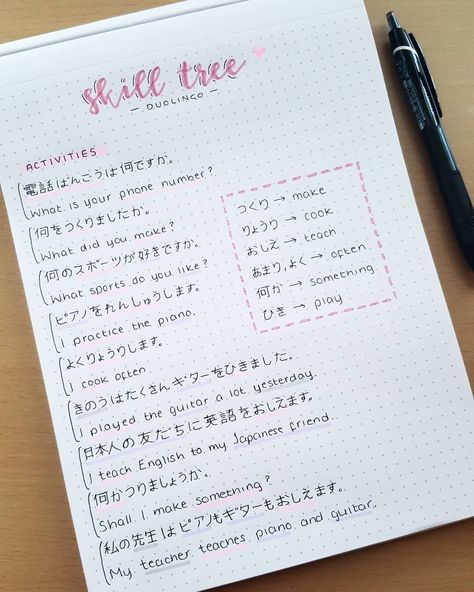 skill tree
— DUOLINGO —
ACTIVITIES
電話ばんごうは何ですか。
What is your phone number?
何をつくりましたか。
What did you make?
何のスポーツが好きですか。
What sports do you like?
ピアノをれんしゅうします。
I practice the piano.
よくりょうりします。
I cook often
きのうはたくさんギターをひきました。
I played the guitar a lot yesterday.
日本人の友だちに英語をおしえます。
I teach English to my Japanese friend.
何かつりましょうか。
Shall I make something?
私の先生はピアノもギターもおしえます。
My teacher teaches piano and guitar.
つくり → make
りょうり → cook
おしえ → teach
あまり、よく → often
何か → something.
ひき → play